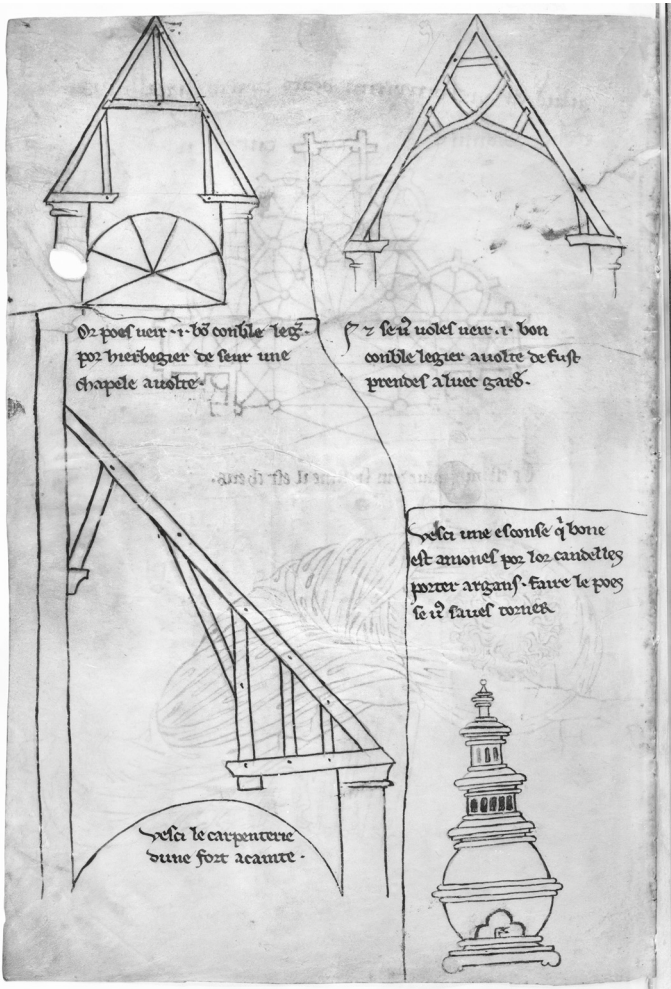 Or poes ueir .i. bō conble leg̃.
por hierbegier de seur une
chapele auolte.
⁊ se uͦ uoles ueir .i. bon
conble legier auolte de fust
prendes aluec gard̃.
Vesci une esconse q̇ bone
est amones por lor candelles
porter argans. faire le poes
se uͦ saues torner
Vesci le carpenterie
dune fort acainte.